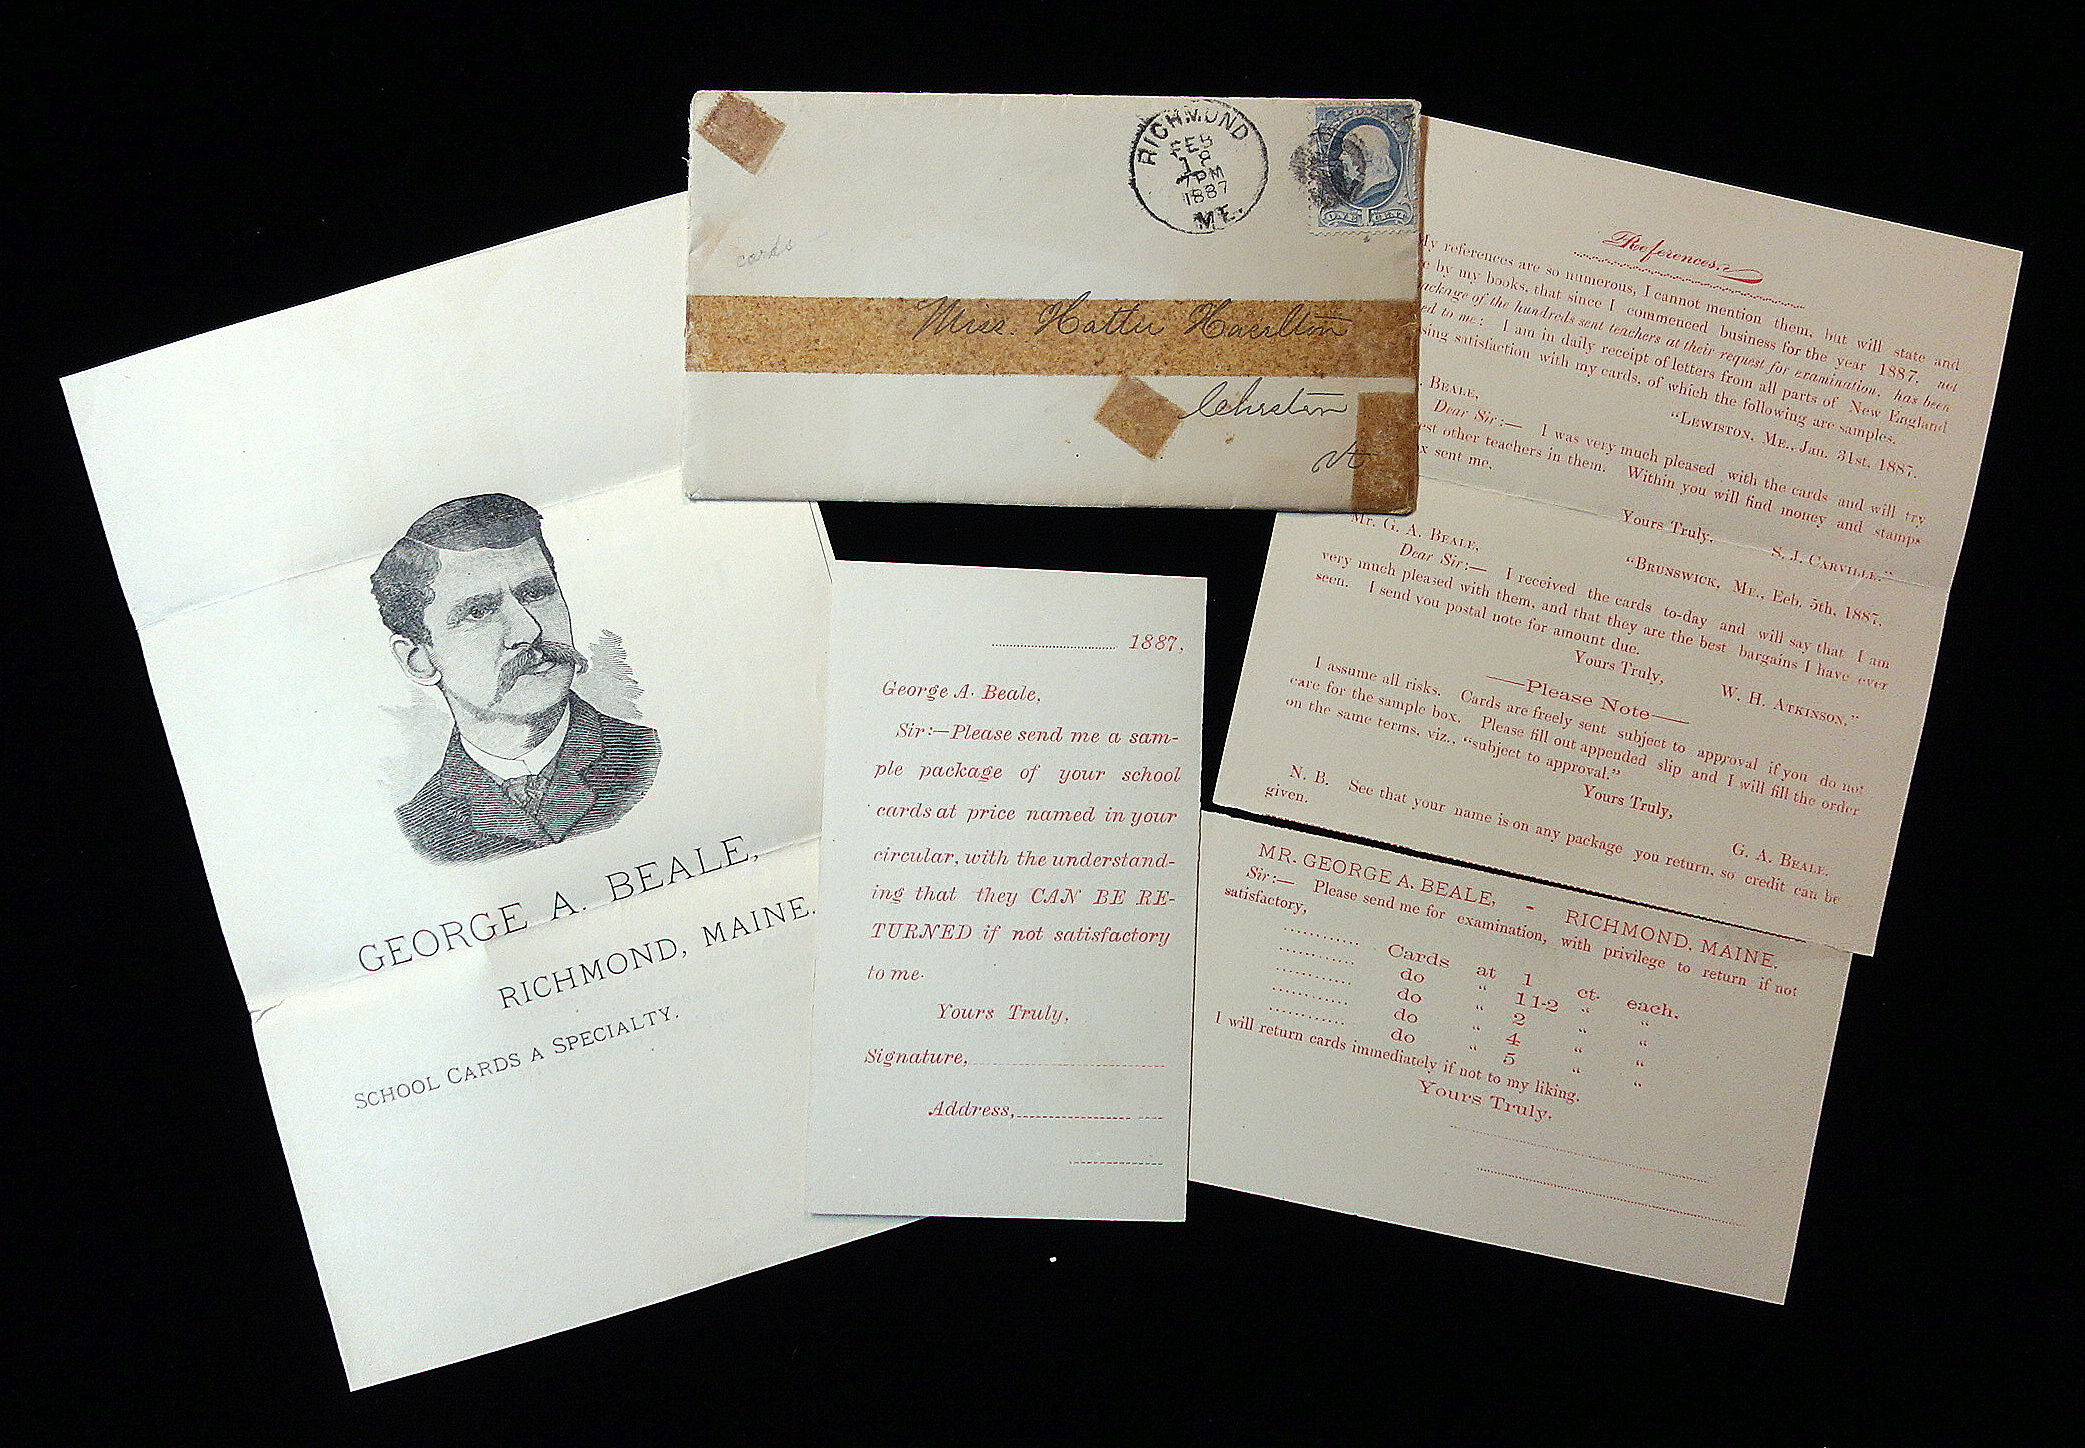 RICHMOND
FEB
18
7PM
1887
ME.
cards
Miss. Hattie
Vt
GEORGE A. BEALE,
RICHMOND, MAINE.
SCHOOL CARDS A SPECIALTY.
1887,
George A. Beale,
Sir:—Please send me a sam-
ple package of your school
cards at price named in your
circular, with the understand-
ing that they CAN BE RE-
TURNED if not satisfactory
to me.
Yours Truly,
Signature,
Address,
References.
My references are so numerous, I cannot mention them, but will state and
e by my books, that since I commenced business for the year 1887, not
ackage of the hundreds sent teachers at their request for examination, has been
ed to me: I am in daily receipt of letters from all parts of New England
sing satisfaction with my cards, of which the following are samples.
"LEWISTON, ME., Jan. 31st, 1887.
. BEALE,
Dear Sir:— I was very much pleased with the cards and will try
est other teachers in them. Within you will find money and stamps
x sent me.
Yours Truly, S. J. CARVILLE."
"BRUNSWICK, ME., Eeb. 5th, 1887.
Mr. G. A. BEALE,
Dear Sir:— I received the cards to-day and will say that I am
very much pleased with them, and that they are the best bargains I have ever
seen. I send you postal note for amount due.
Yours Truly, W. H. ATKINSON."
—Please Note—
I assume all risks. Cards are freely sent subject to approval if you do not
care for the sample box. Please fill out appended slip and I will fill the order
on the same terms, viz., "subject to approval."
Yours Truly,
G. A. BEALE.
N. B. See that your name is on any package you return, so credit can be
given.
MR. GEORGE A. BEALE, - RICHMOND, MAINE.
Sir:— Please send me for examination, with privilege to return if not
satisfactory,
Cards at 1 ct. each.
do " 1 1-2 " "
do " 2 " "
do " 4 " "
do " 5 " "
I will return cards immediately if not to my liking.
Yours Truly,